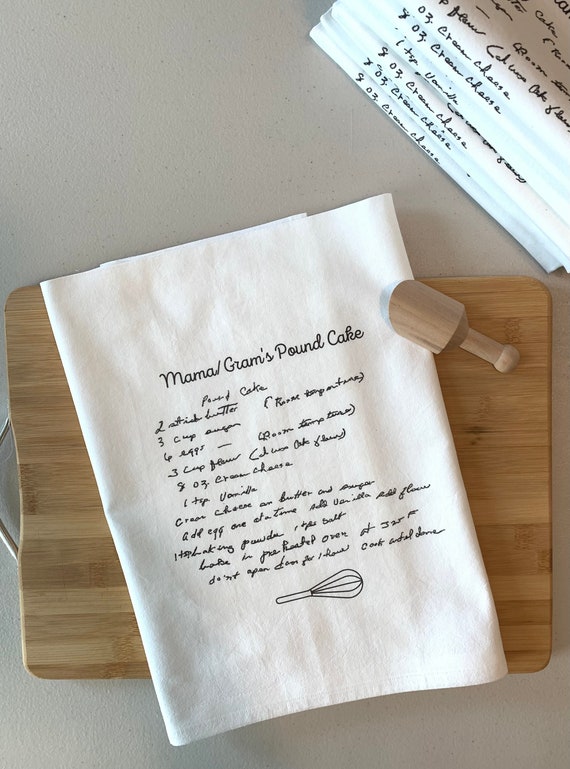 Mama/Gram's Pound Cake
Pound Cake
2 stick butter (Room temperature)
3 cup sugar
6 eggs — (Room temp)
3 cup flour (Swan Cake flour)
8 oz. cream cheese
1 tsp Vanilla
Cream cheese an butter and sugar
add egg one at a time add vanilla add flour
1 tsp baking powder 1 tsp salt
bake in pre heated oven at 325° F
don't open door for 1 hour cook until done
8 oz. cream cheese
1 tsp Vanilla
8 oz. cream cheese
8 oz. cream cheese
8 oz. cream cheese